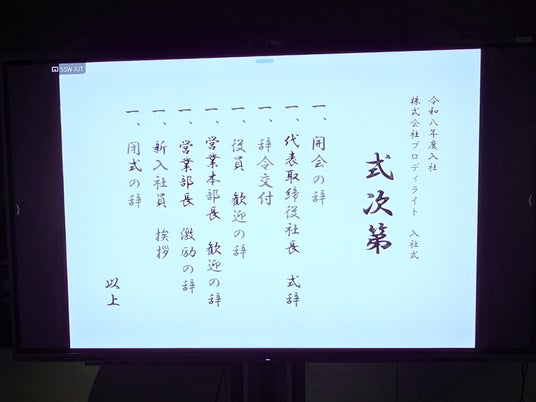 SSW JUT
令和八年度入社
株式会社プロディライト 入社式
式次第
一、開会の辞
一、代表取締役社長 式辞
一、辞令交付
一、役員 歓迎の辞
一、営業本部長 歓迎の辞
一、営業部長 激励の辞
一、新入社員 挨拶
一、閉式の辞
以上